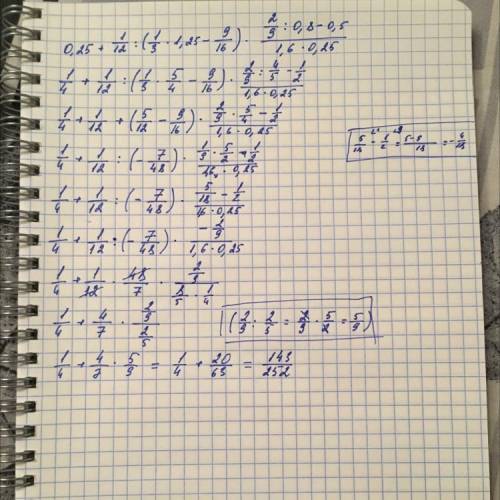 0,25 + 1/12 : (1/3 · 1,25 − 9/16) · (2/9 : 0,8 − 0,5)/(1,6 · 0,25)
1/4 + 1/12 : (1/3 · 5/4 − 9/16) · (2/9 : 4/5 − 1/2)/(1,6 · 0,25)
1/4 + 1/12 + (5/12 − 9/16) · (2/9 · 5/4 − 1/2)/(1,6 · 0,25)
1/4 + 1/12 : (−7/48) · (1/9 · 5/2 − 1/2)/(1,6 · 0,25)
1/4 + 1/12 : (−7/48) · (5/18 − 1/2)/(1,6 · 0,25)
1/4 + 1/12 : (−7/48) · (−2/9)/(1,6 · 0,25)
1/4 + 1/12 · 48/7 · (2/9)/(8/5 · 1/4)
1/4 + 4/7 · (2/9)/(2/5)
(2/9 : 2/5 = 2/9 · 5/2 = 5/9)
1/4 + 4/7 · 5/9 = 1/4 + 20/63 = 143/252